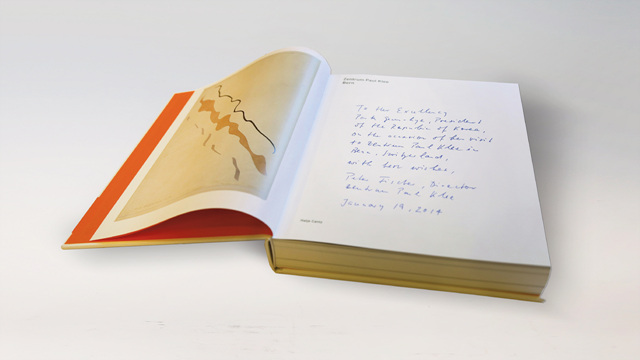 Zentrum Paul Klee
Bern
To Her Excellency
Park Geun-hye, President
of the Republic of Korea,
on the occasion of her visit
to Zentrum Paul Klee in
Bern, Switzerland,
with best wishes,
Peter Fischer, Director
Zentrum Paul Klee
January 19, 2014